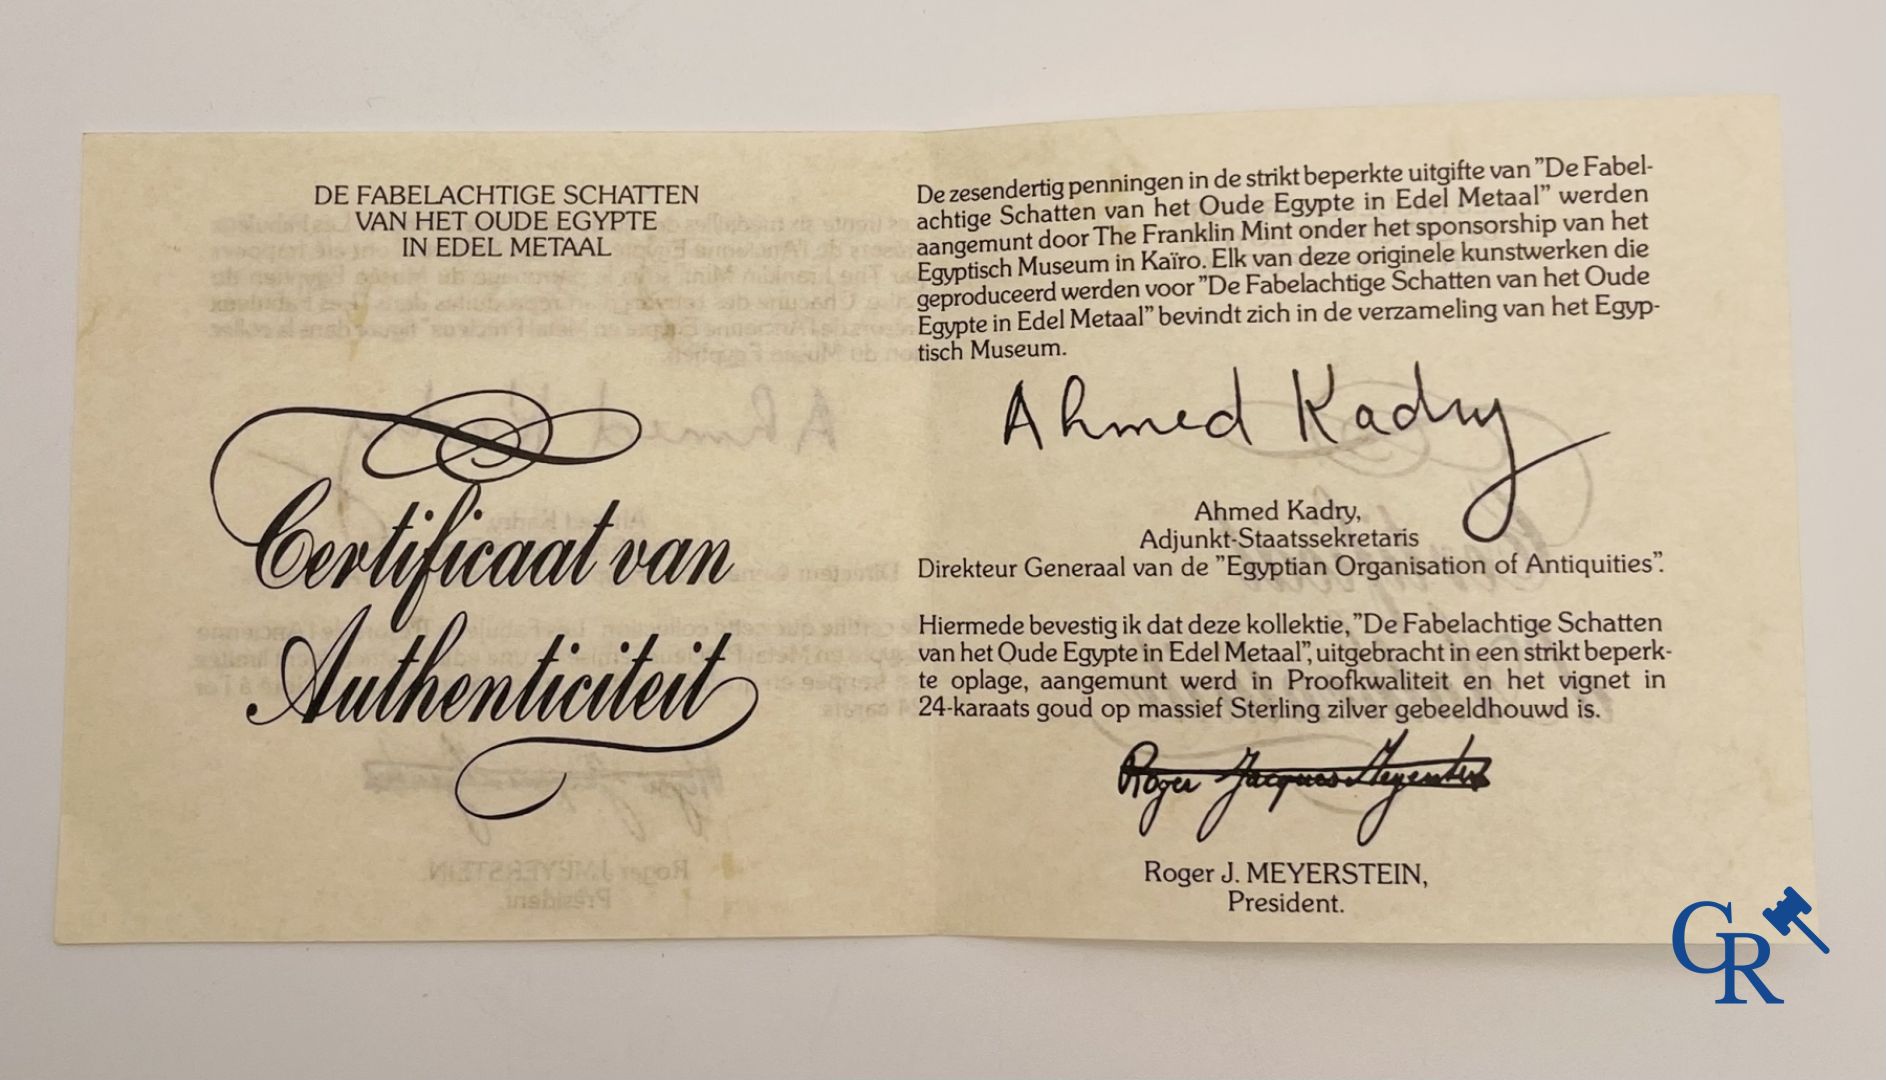 DE FABELACHTIGE SCHATTEN
VAN HET OUDE EGYPTE
IN EDEL METAAL
Certificaat van
Authenticiteit
De zesendertig penningen in de strikt beperkte uitgifte van ”De Fabel-
achtige Schatten van het Oude Egypte in Edel Metaal” werden
aangemunt door The Franklin Mint onder het sponsorship van het
Egyptisch Museum in Kaïro. Elk van deze originele kunstwerken die
geproduceerd werden voor ”De Fabelachtige Schatten van het Oude
Egypte in Edel Metaal” bevindt zich in de verzameling van het Egyp-
tisch Museum.
Ahmed Kadry
Ahmed Kadry,
Adjunkt-Staatssekretaris
Direkteur Generaal van de ”Egyptian Organisation of Antiquities”.
Hiermede bevestig ik dat deze kollektie, ”De Fabelachtige Schatten
van het Oude Egypte in Edel Metaal”, uitgebracht in een strikt beperk-
te oplage, aangemunt werd in Proofkwaliteit en het vignet in
24-karaats goud op massief Sterling zilver gebeeldhouwd is.
Roger Jacques Meyerstein
Roger J. MEYERSTEIN,
President.
CR